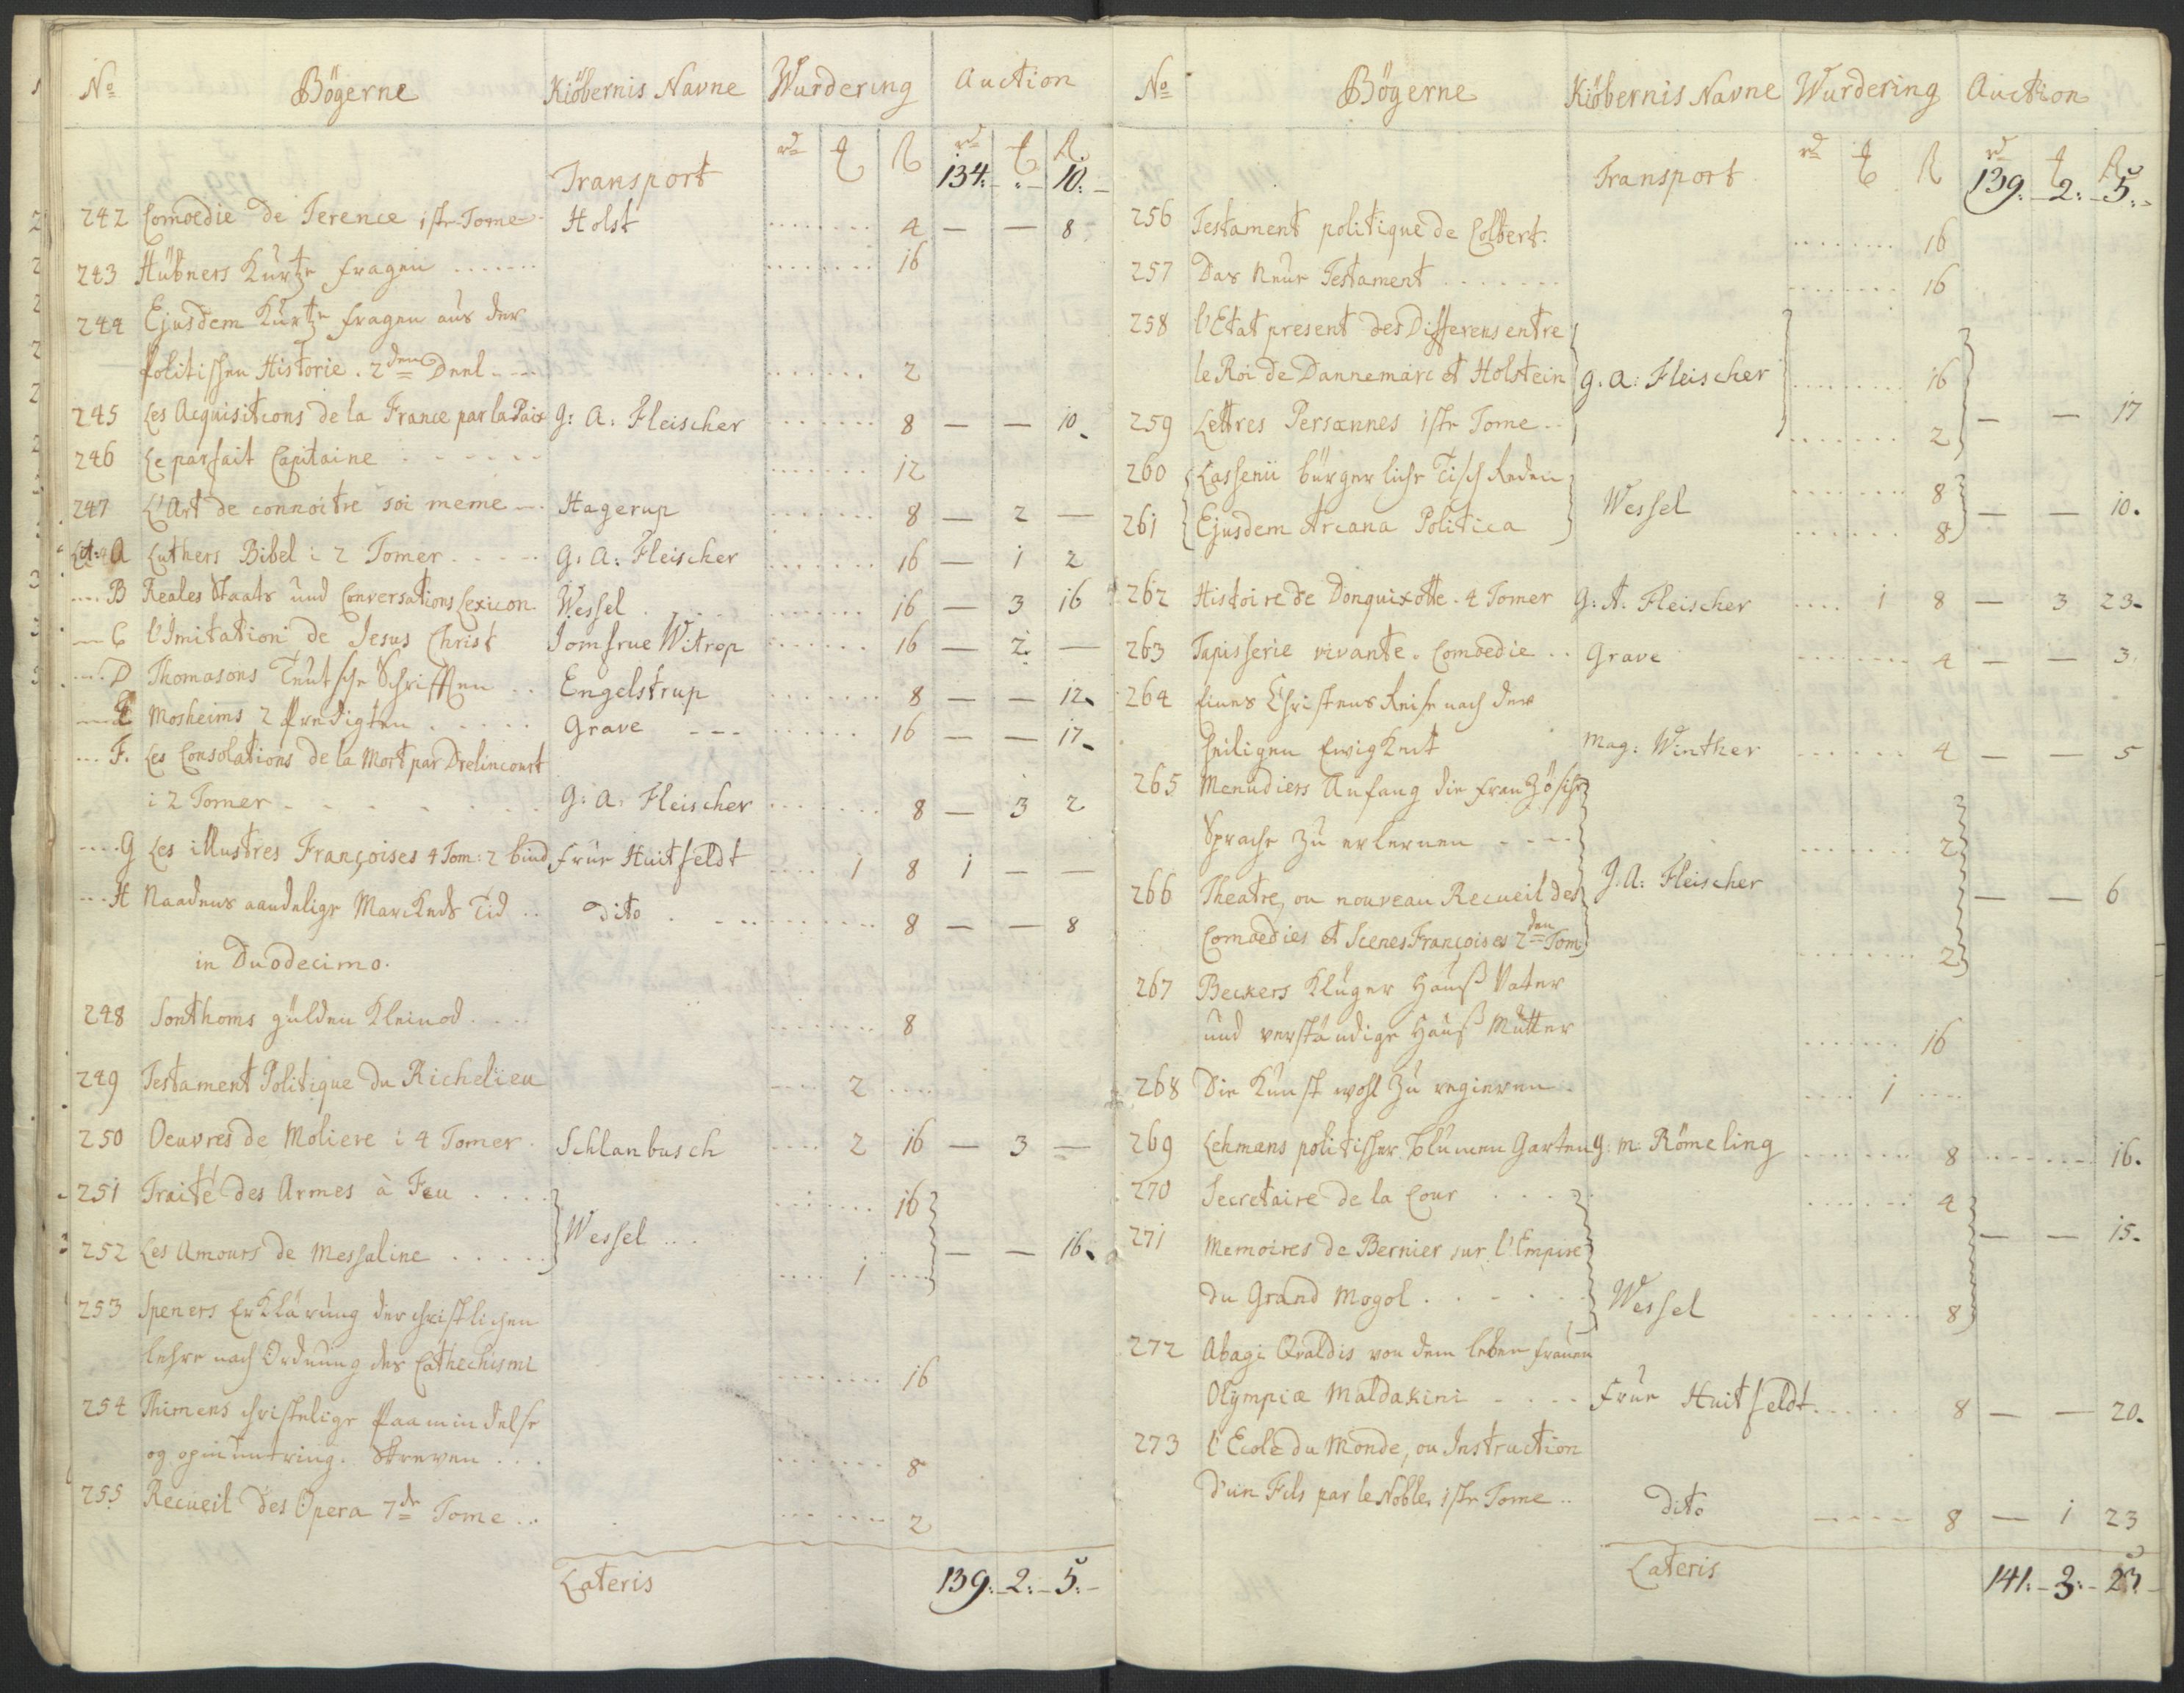 No Bögerne Kiöbernis Navne Wurdering Auction
rd ꝑ ß rd ꝑ ß
Transport 134: - : - 10: -
242 Comoedie de Terence 1ste Tome Holst ........ 4 — — 8
243 Hübners Kurtze fragen ....... ........ 16
244 Ejusdem Kurtze fragen aus der
Politischen Historie. 2den Deel ... ....... 2
245 Les Acquisitions de la France par la Paix G: A: Fleischer ....... 8 — — 10
246 Le parfait Capitaine ...... ....... 12
247 L'Art de connoitre soi meme .. Hagerup ....... 8 — 2 —
Lit: A Luthers Bibel i 2 Tomer ..... G: A: Fleischer ....... 16 — 1 2
.... B Reales Staats und Conversations Lexicon Wessel .... ....... 16 — 3 16
— C l'Imitation de Jesus Christ Jomfrue Witrop ....... 16 — 2: —
.... D Thomasons Teutsche Schrifften .. Engelstrup ....... 8 — — 12
.... E Mosheims 2 Predigten ..... Grave ... ....... 16 — — 17
... F. Les Consolations de la Mort par Drelincourt
i 2 Tomer ...... G: A: Fleischer ....... 8 — 3 2
.... G Les illustres Françoises 4 Tom: 2 bind Frue Huitfeldt .... 1 8 1 — —
... H Naadens aandelige Markeds Tid .. dito .... ....... 8 — — 8
in Duodecimo.
248 Sonthoms gülden Kleinod .... ....... 8
249 Testament Politique du Richelieu .... 2 ....
250 Oeuvres de Moliere i 4 Tomer. Schlanbusch .... 2 16 — 3 —
251 Traité des Armes à Feu .... ....... 16
Wessel ...
252 Les Amours de Messaline ..... .... 1 .... — — 16
253 Speners Erklärung der christlichen
lehre nach Ordnung des Cathechismi ....... 16
254 Thimens christelige Paamindelse
og opmuntring. Skreven ... ....... 8
255 Recueil des Opera 7de Tome ... ....... 2
Lateris 139: - 2: - 5: -
No Bögerne Kiöbernis Navne Wurdering Auction
rd ꝑ ß rd ꝑ ß
Transport 139: - 2: - 5: -
256 Testament politique de Colbert. ........ 16
257 Das Neue Testament ....... ....... 16
258 l'Etat present des Differens entre
le Roi de Dannemarc et Holstein G: A: Fleischer ....... 16
— — 17
259 Lettres Persannes 1ste Tome .. ....... 2
260 Lassenii bürgerliche Tisch Reden ....... 8
Wessel — — 10.
261 Ejusdem Arcana Politica ....... 8
262 Histoire de Donquixotte. 4 Tomer G: A: Fleischer .... 1 8 — 3 23
263 Tapisserie vivante. Comoedie .. Grave ....... 4 — — 3
264 Eines Christens Reise nach der
heiligen Ewigkeit Mag: Winther ...... 4 — — 5
265 Menudiers Anfang die Französche
Sprache zu erlernen .... ....... 2
G: A: Fleischer
— — 6
266 Theatre, ou nouveau Recueil des
Comoedies et Scenes Françoises 2den Tom: ....... 2
267 Beckers Kluger Hauß Vater
und verständige Hauß Mutter ....... 16
268 Die Kunst wohl zu regieren .. .... 1 ....
269 Lehmans politischer Blumen Garten G: M: Römeling ....... 8 ....... 16.
270 Secretaire de la Cour .... ....... 4
— — 15.
271 Memoires de Bernier sur l'Empire
du Grand Mogol ...... Wessel ....... 8
272 Abagi Qvaldis von dem leben frauen
Olympiæ Maldakini .... Frue Huitfeldt ...... 8 — — 20.
273 l'Ecole du Monde, ou Instruction
d'un Fils par le Noble, 1ste Tome .. dito ..... 8 — 1 23
Lateris 141: - 3: - 23 -